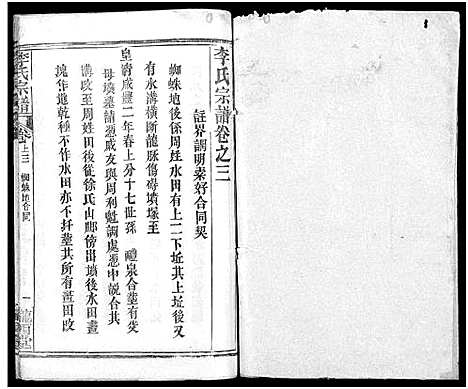 李氏宗譜卷之三
註界調明素好合同契
蜘蛛地後係周姓水田有上一二下坵其上坵後又
有水溝橫斷龍脉傷碍墳塚至
皇清咸豐二年春上分十七世孫 體泉合葬有癸
母墳墓請憑戚友與周利魁調處憑中說合其
溝改至周姓田後從徐氏山脚傍出墳後水田畫
塊作進乾種不作水田亦不扦葬其所有畫田改
李氏宗譜
卷之三
蜘蛛地合同
一